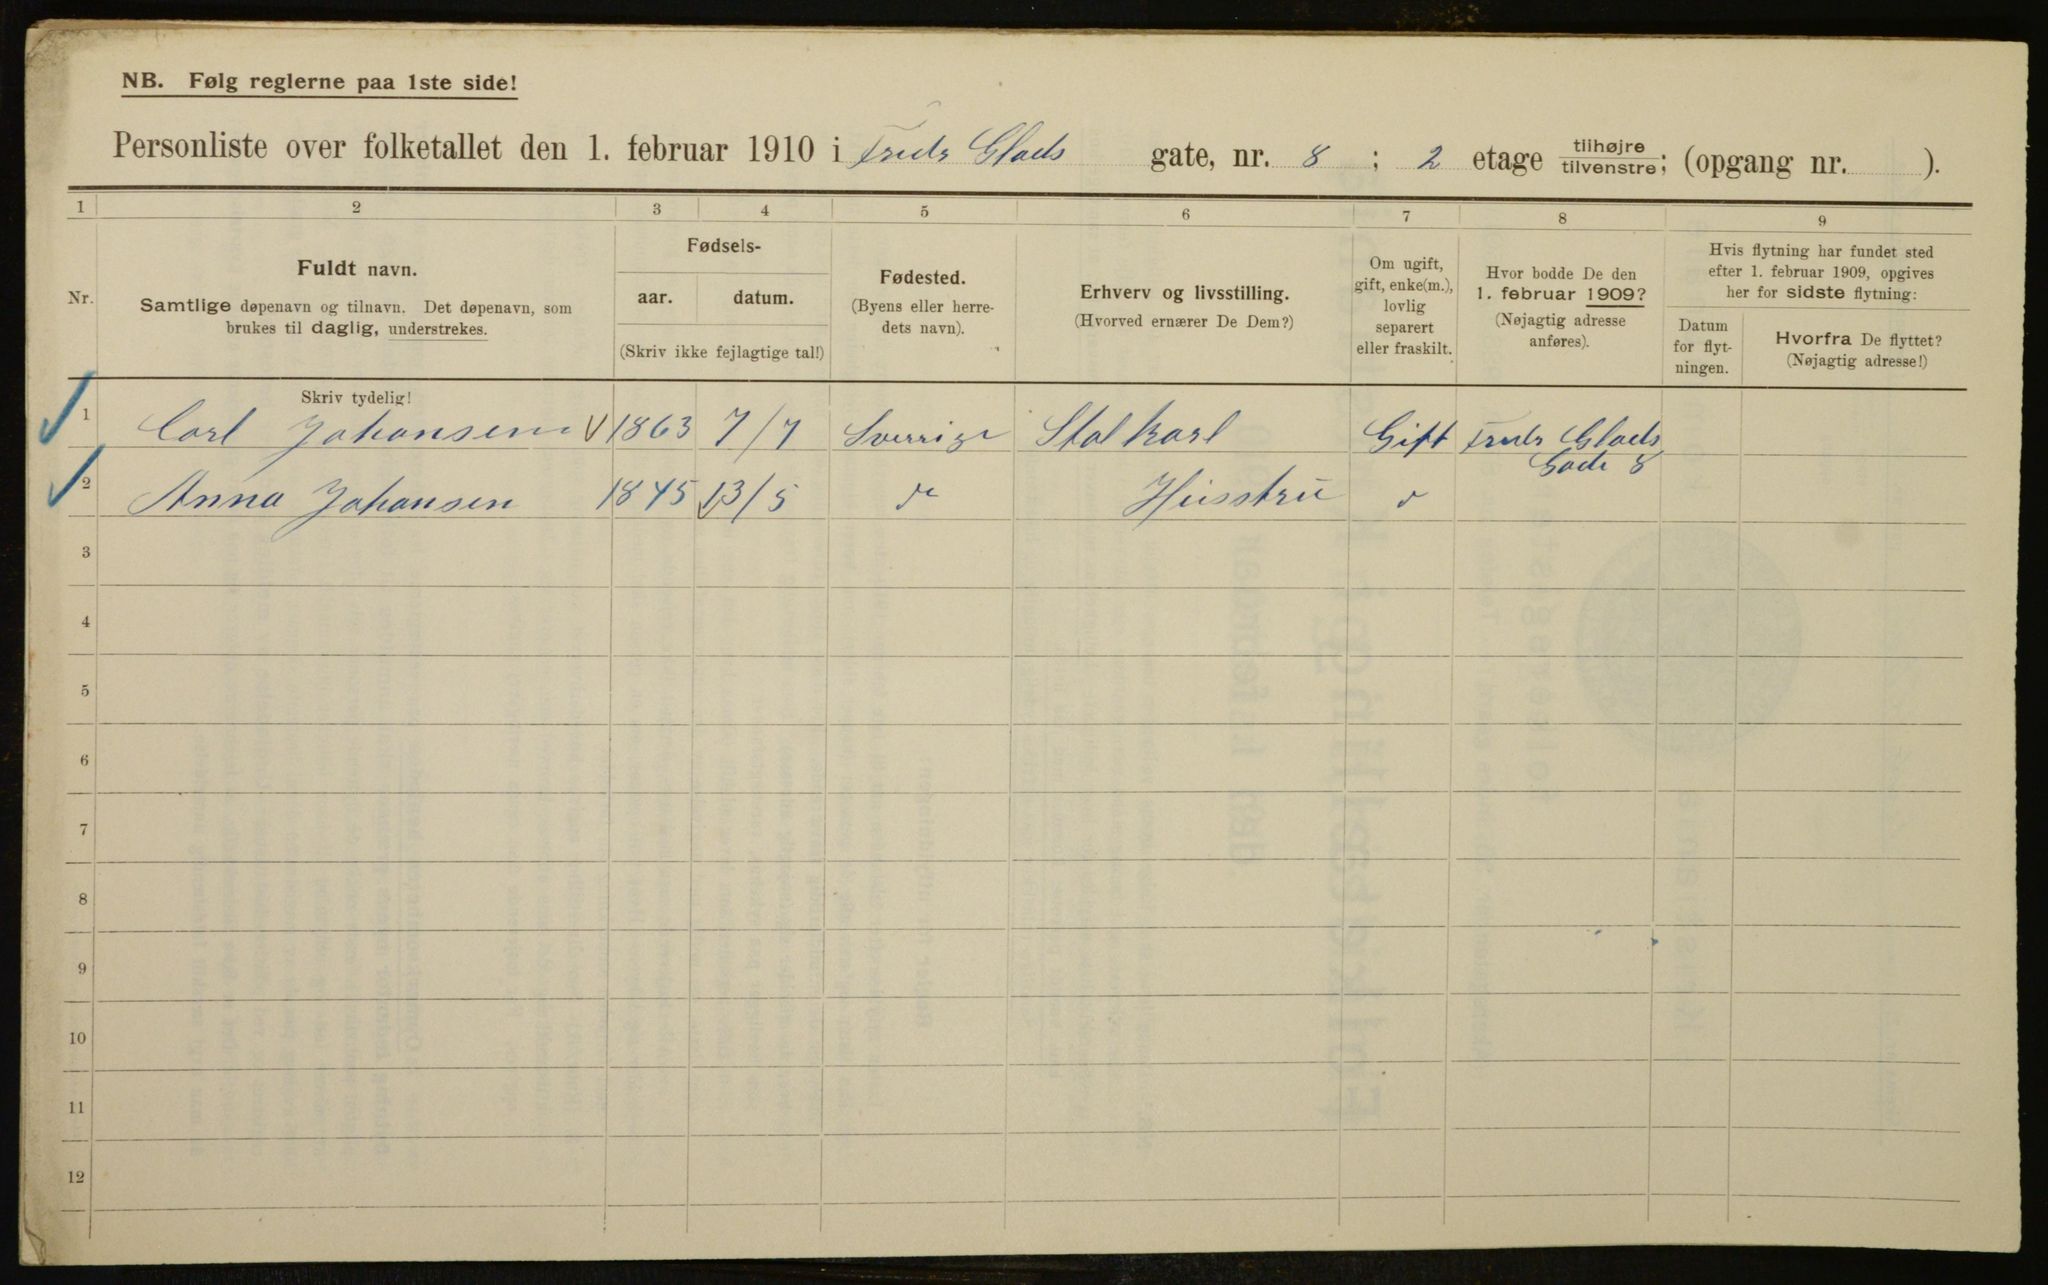 NB. Følg reglerne paa 1ste side!
Personliste over folketallet den 1. februar 1910 i Fredr Glads gate, nr. 8; 2 etage tilhøjre/tilvenstre; (opgang nr. ).
1 2 3 4 5 6 7 8 9
Nr.
Fuldt navn.
Samtlige døpenavn og tilnavn. Det døpenavn, som
brukes til daglig, understrekes.
Fødsels-
aar. datum.
(Skriv ikke fejlagtige tal!)
Fødested.
(Byens eller herre-
dets navn).
Erhverv og livsstilling.
(Hvorved ernærer De Dem?)
Om ugift,
gift, enke(m.),
lovlig
separert
eller fraskilt.
Hvor bodde De den
1. februar 1909?
(Nøjagtig adresse
anføres).
Hvis flytning har fundet sted
efter 1. februar 1909, opgives
her for sidste flytning:
Datum
for flyt-
ningen.
Hvorfra De flyttet?
(Nøjagtig adresse!)
Skriv tydelig!
1 Carl Johansen 1863 7/7 Sverrige Stalkarl Gift Fredr Glads
Gade 8
2 Anna Johansen 1845 13/5 Husstru
3
4
5
6
7
8
9
10
11
12